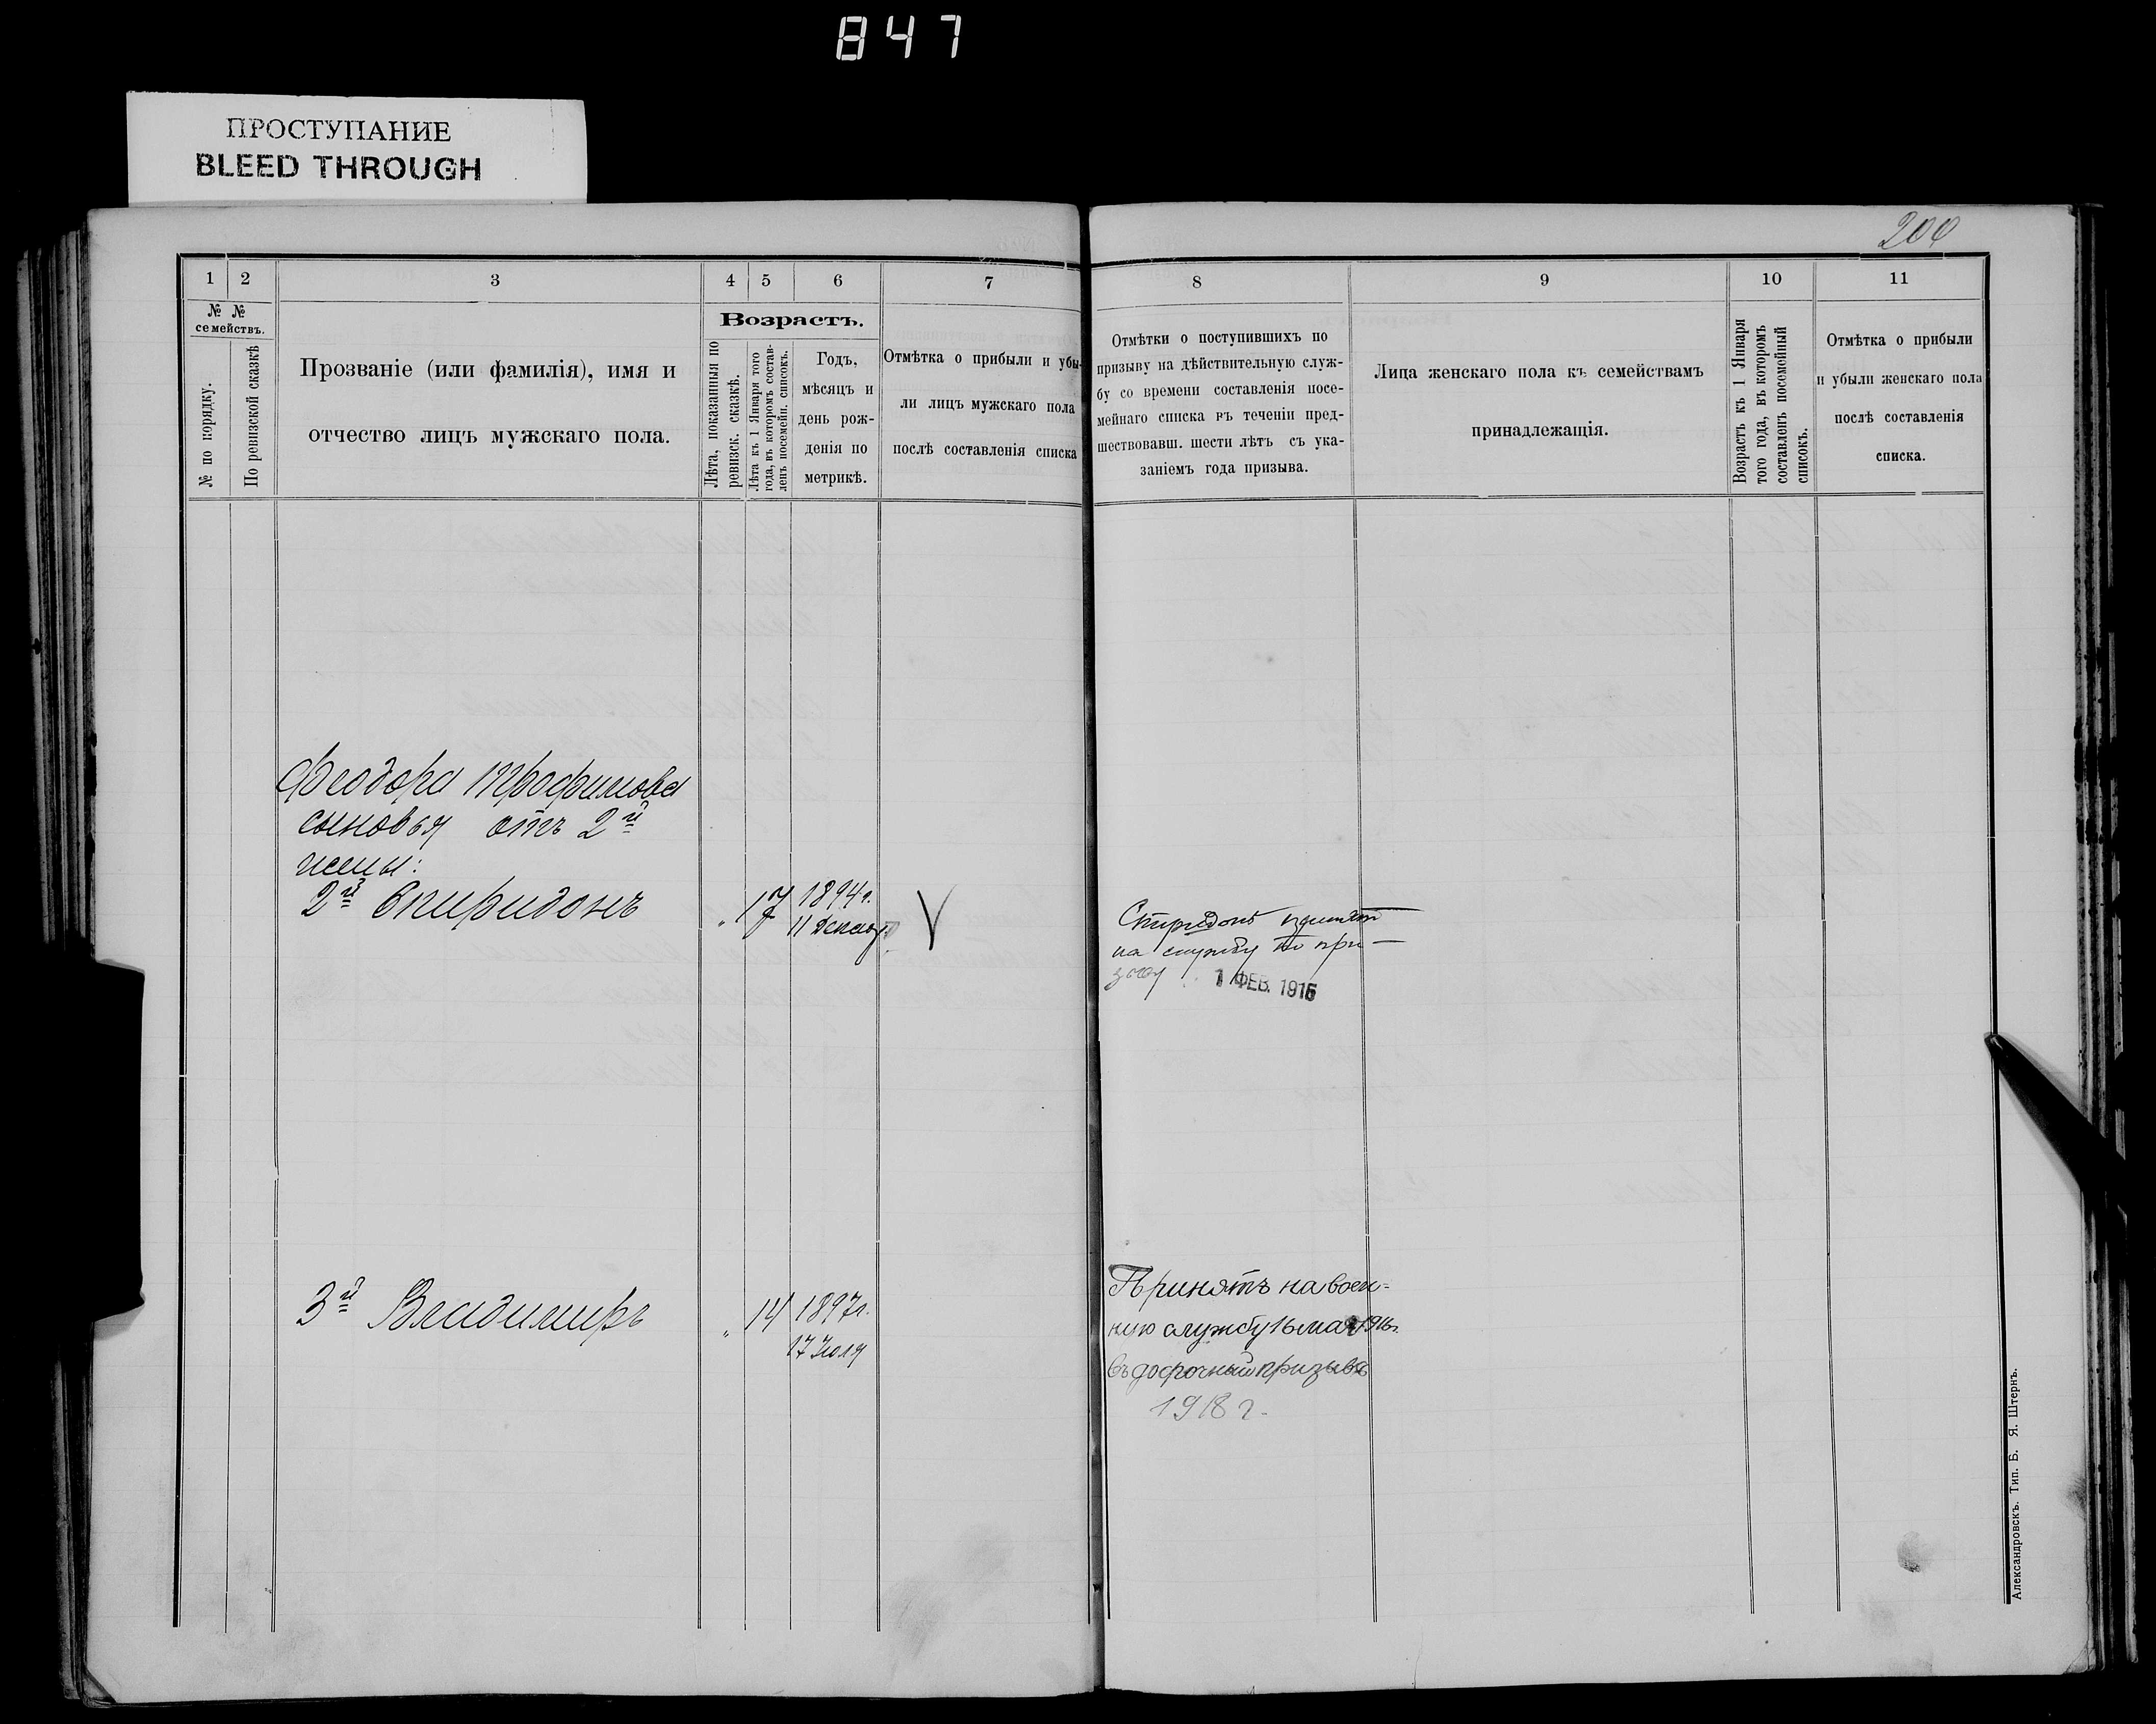 847
ПРОСТУПАНИЕ
BLEED THROUGH
200
1 2 3 4 5 6 7 8 9 10 11
№ № семействъ.
№ по порядку.
По ревизской сказкѣ
Прозваніе (или фамилія), имя и
отчество лицъ мужскаго пола.
Возрастъ.
Лѣта, показанныя по
ревизск. сказкѣ.
Лѣта къ 1 Января того
года, въ которомъ состав-
ленъ посемейн. списокъ.
Годъ,
мѣсяцъ и
день рож-
денія по
метрикѣ.
Отмѣтка о прибыли и убы-
ли лицъ мужскаго пола
послѣ составленія списка
Отмѣтки о поступившихъ по
призыву на дѣйствительную служ-
бу со времени составленія посе-
мейнаго списка въ теченіи пред-
шествовавш. шести лѣтъ съ ука-
заніемъ года призыва.
Лица женскаго пола къ семействамъ
принадлежащія.
Возрастъ къ 1 Января
того года, въ которомъ
составленъ посемейный
списокъ.
Отмѣтка о прибыли
и убыли женскаго пола
послѣ составленія
списка.
Феодора Трофимова
сыновья отъ 2й
жены:
2й Спиридонъ " 17 1894 г.
11 Декаб. V
Спиридонъ принят
на службу по при-
зыву 1 ФЕВ. 1915
3й Владимиръ " 14 1897г.
17 Июля
Принятъ на воен-
ную службу 16 мая 1916г.
въ досрочный призывъ
1918 г.
Александровскъ. Тип. Б. Я. Штернъ.